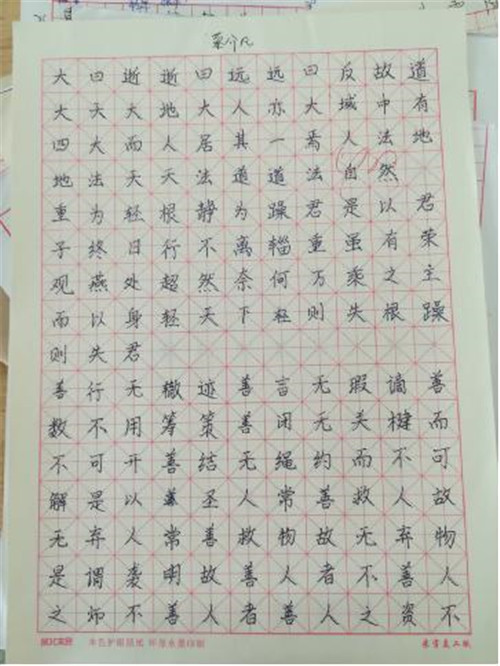 大曰逝逝曰远远曰反故道
大天大地大人亦大域中有
四大而人居其一焉人法地
地法天天法道道法自然
重为轻根静为躁君是以君
子终日行不离辎重虽有荣
观燕处超然奈何万乘之主
而以身轻天下轻则失根躁
则失君
善行无辙迹善言无瑕谪善
数不用筹策善闭无关楗而
不可开善结无绳约而不可
解是以善圣人常善救人故
无弃人常善救物故无弃物
是谓袭明故善人者不善人
之师不善人者善人之资不